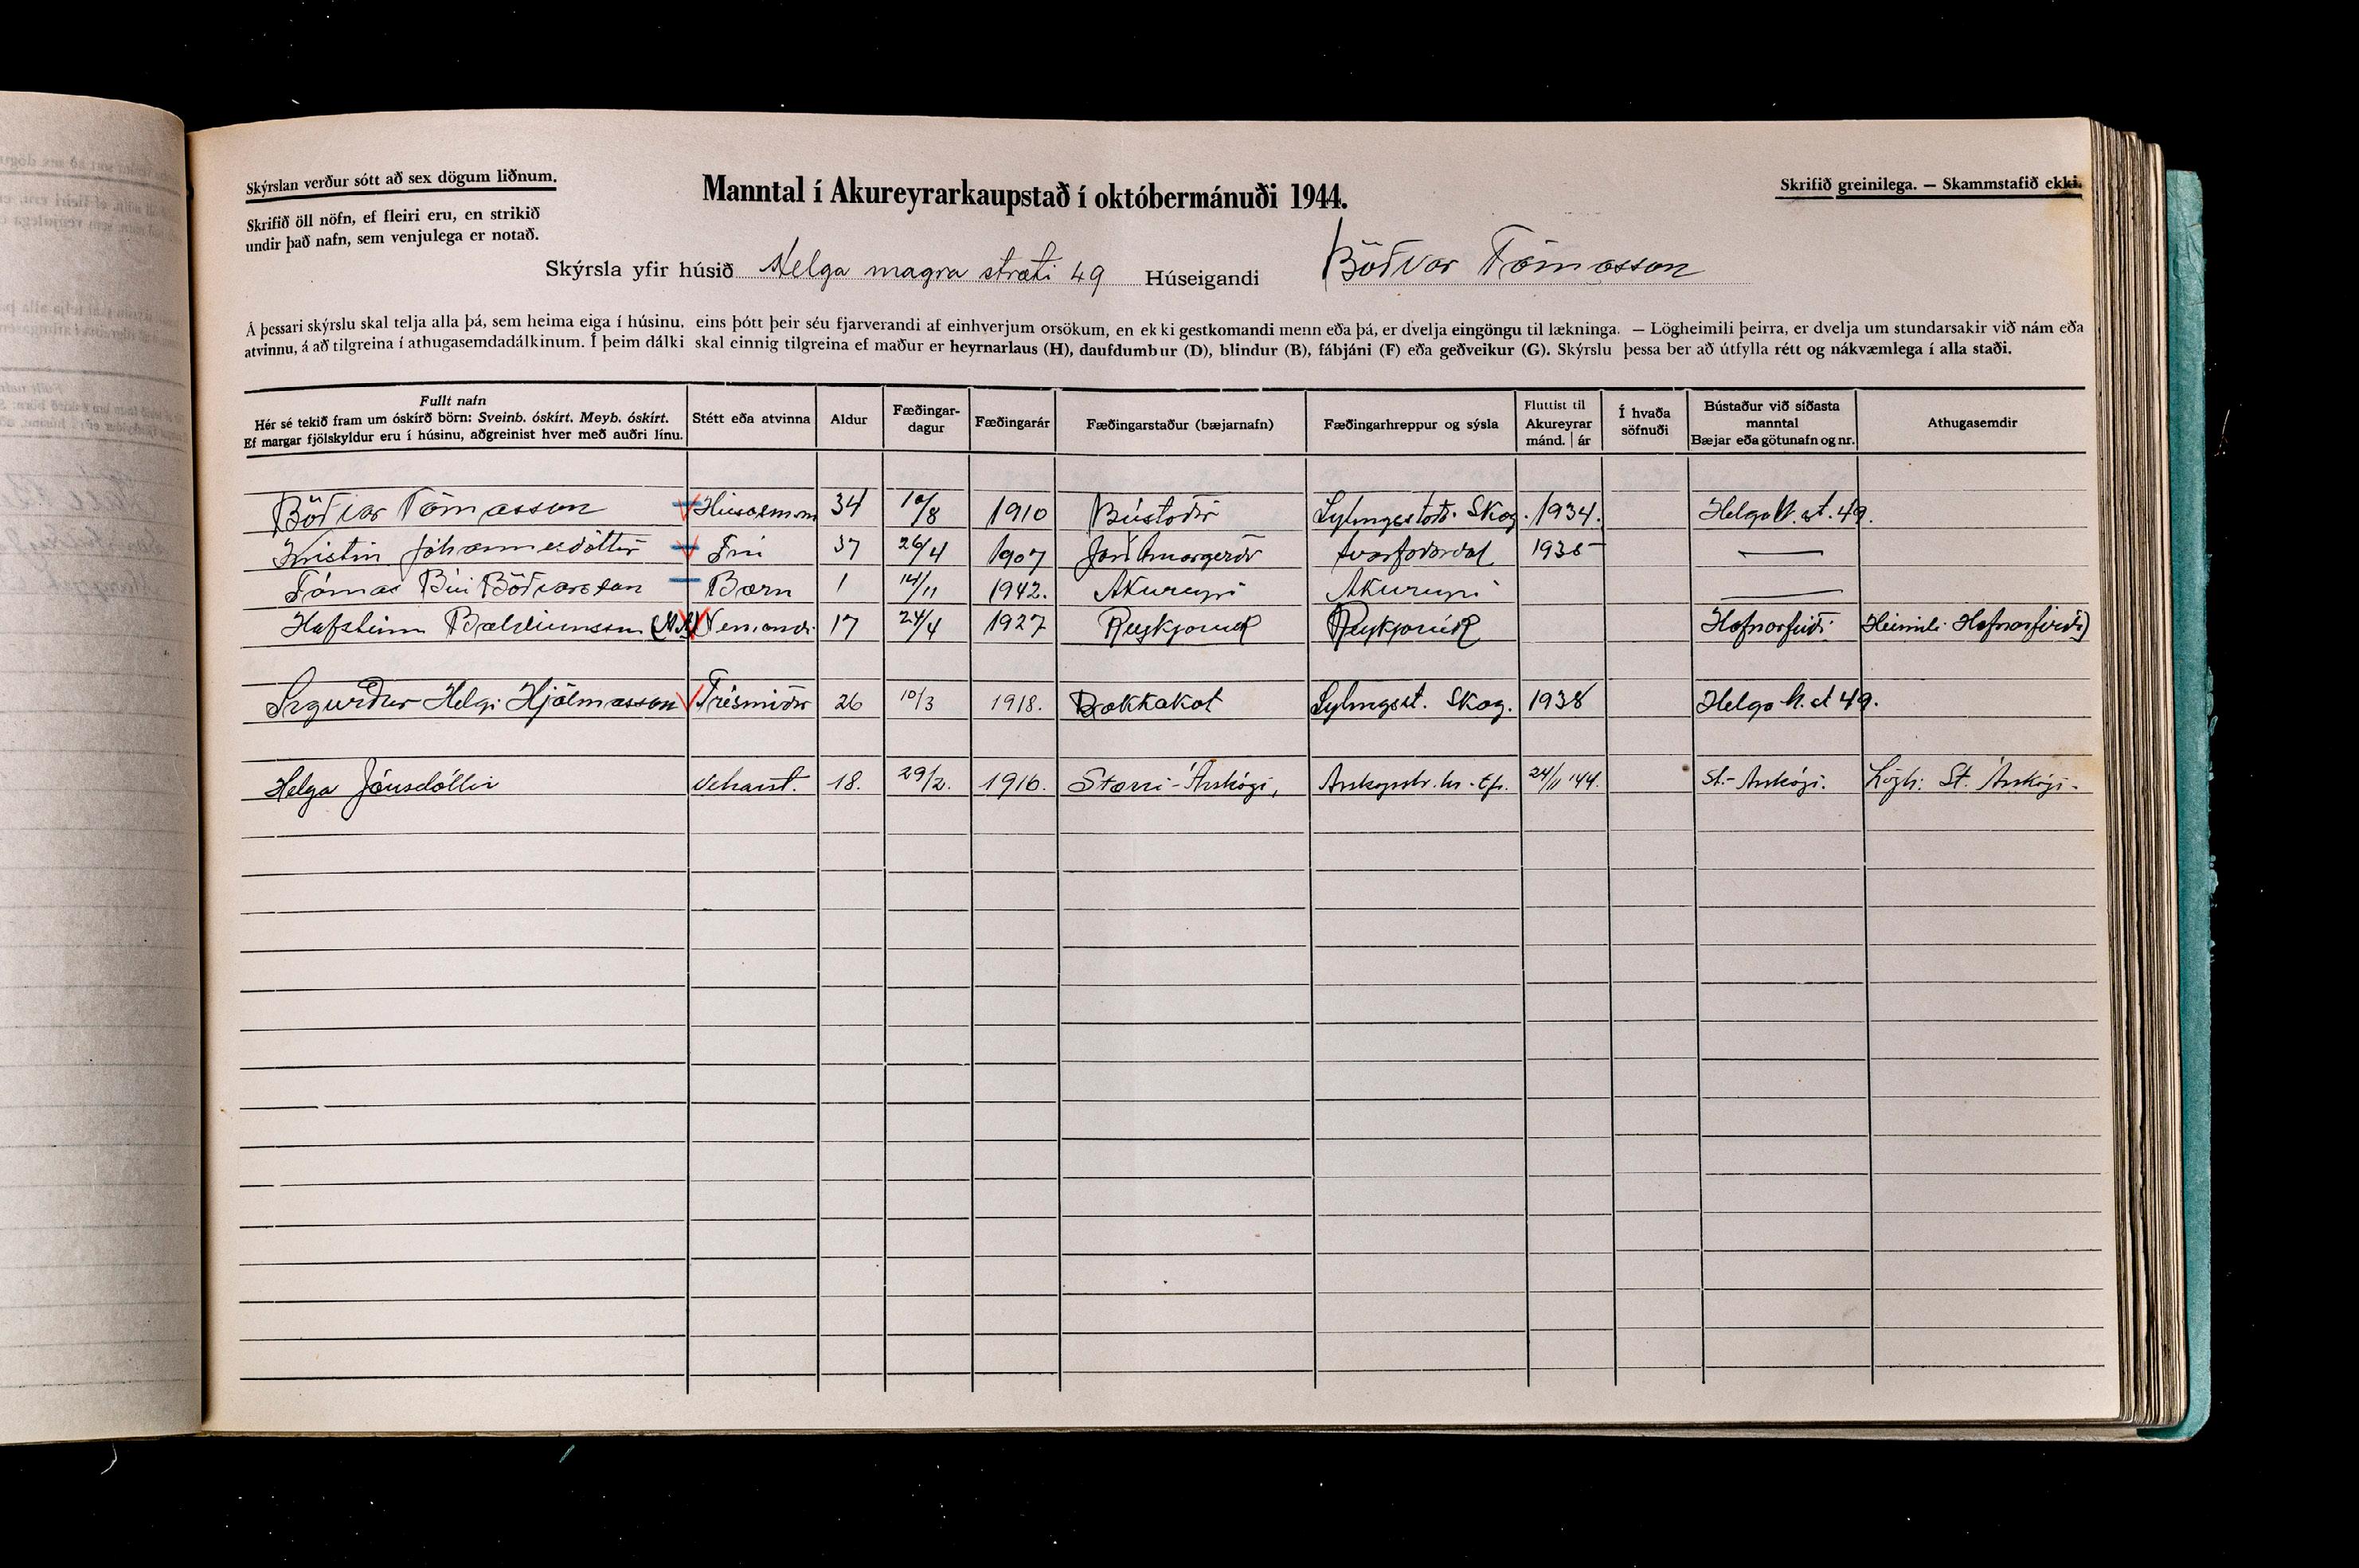 Skýrslan verður sótt að sex dögum liðnum.
Skrifið öll nöfn, ef fleiri eru, en strikið
undir það nafn, sem venjulega er notað.
Manntal í Akureyrarkaupstað í októbermánuði 1944.
Skrifið greinilega. — Skammstafið ekki.
Skýrsla yfir húsið Helga magra stræti 49 Húseigandi Böðvar Tómasson
Á þessari skýrslu skal telja alla þá, sem heima eiga í húsinu, eins þótt þeir séu fjarverandi af einhverjum orsökum, en ekki gestkomandi menn eða þá, er dvelja eingöngu til lækninga. — Lögheimili þeirra, er dvelja um stundarsakir við nám eða
atvinnu, á að tilgreina í athugasemdadálkinum. Í þeim dálki skal einnig tilgreina ef maður er heyrnarlaus (H), daufdumbur (D), blindur (B), fábjáni (F) eða geðveikur (G). Skýrslu þessa ber að útfylla rétt og nákvæmlega í alla staði.
Fullt nafn
Hér sé tekið fram um óskírð börn: Sveinb. óskírt. Meyb. óskírt.
Ef margar fjölskyldur eru í húsinu, aðgreinist hver með auðri línu.
Stétt eða atvinna
Aldur
Fæðingar-
dagur
Fæðingarár
Fæðingarstaður (bæjarnafn)
Fæðingarhreppur og sýsla
Fluttist til
Akureyrar
mánd. | ár
Í hvaða
söfnuði
Bústaður við síðasta
manntal
Bæjar eða götunafn og nr.
Athugasemdir
Böðvar Tómasson 34 10/8 1910 Bústaðir Skag. 1934. Helga M. st. 49.
Kristín Jóhannesdóttir Frú 37 26/4 1907 Svarfaðardal 1935 —
Tómas Búi Böðvarsson Barn 1 14/11 1942. Akureyri Akureyri —
Hafsteinn (M.A) Nemandi 17 24/4 1927 Reykjavík Reykjavík Hafnarfirði Heimili Hafnarfirði)
Sigurður Helgi Hjálmarsson Trésmiður 26 10/3 1918. Bakkakot Skag. 1938 Helga M. st 49.
Helga Jónsdóttir 18. 29/2. 1916. Stærri-Árskógi, 24/11 '44. St.-Árskógi. Lögh: St. Árskógi.